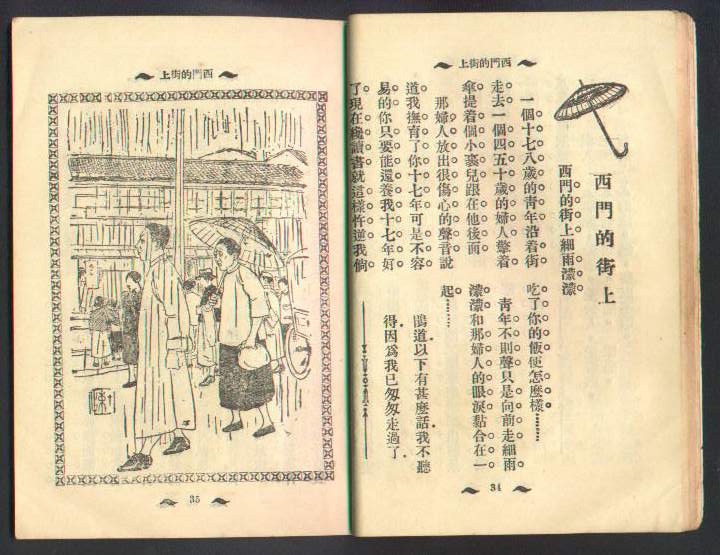 西門的街上
西門的街上
西門的街上細雨濛濛
一個十七八歲的青年沿着街
走去一個四五十歲的婦人擎着
傘提着個小裹兒跟在他後面
那婦人放出很傷心的聲音說
道我撫育了你十七年可是不容
易的你只要能還養我十七年好
了現在纔讀書就這樣忤逆我倘
吃了你的飯便怎麼樣………
青年不則聲只是向前走細雨
濛濛和那婦人的眼淚黏合在一
起………
鵑道以下有甚麼話我不聽
得因爲我已匆匆走過了
34
西門的街上
35